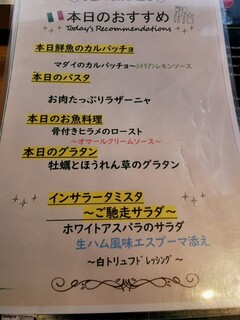 本日のおすすめ
Today's Recommendations
本日鮮魚のカルパッチョ
マダイのカルパッチョ～シチリアンレモンソース
本日のパスタ
お肉たっぷりラザーニャ
本日のお魚料理
骨付きヒラメのロースト
～オマールクリームソース～
本日のグラタン
牡蠣とほうれん草のグラタン
インサラータミスタ
～ご馳走サラダ～
ホワイトアスパラのサラダ
生ハム風味エスプーマ添え
～白トリュフドレッシング～